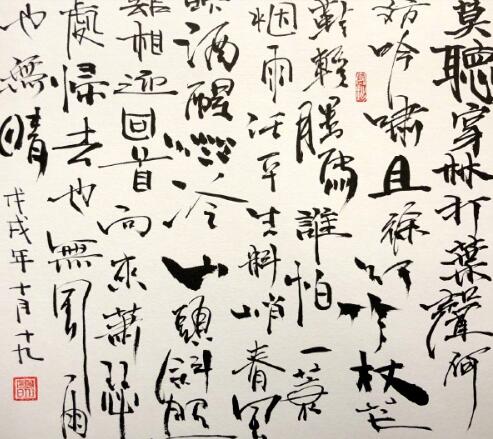 莫聽穿林打葉聲何
妨吟嘯且徐行竹杖芒
鞋輕勝馬誰怕一蓑
烟雨任平生料峭春風
酒醒微冷山頭斜照
相迎回首向來蕭瑟
處歸去也無風雨
也無晴
戊戌年十月十九